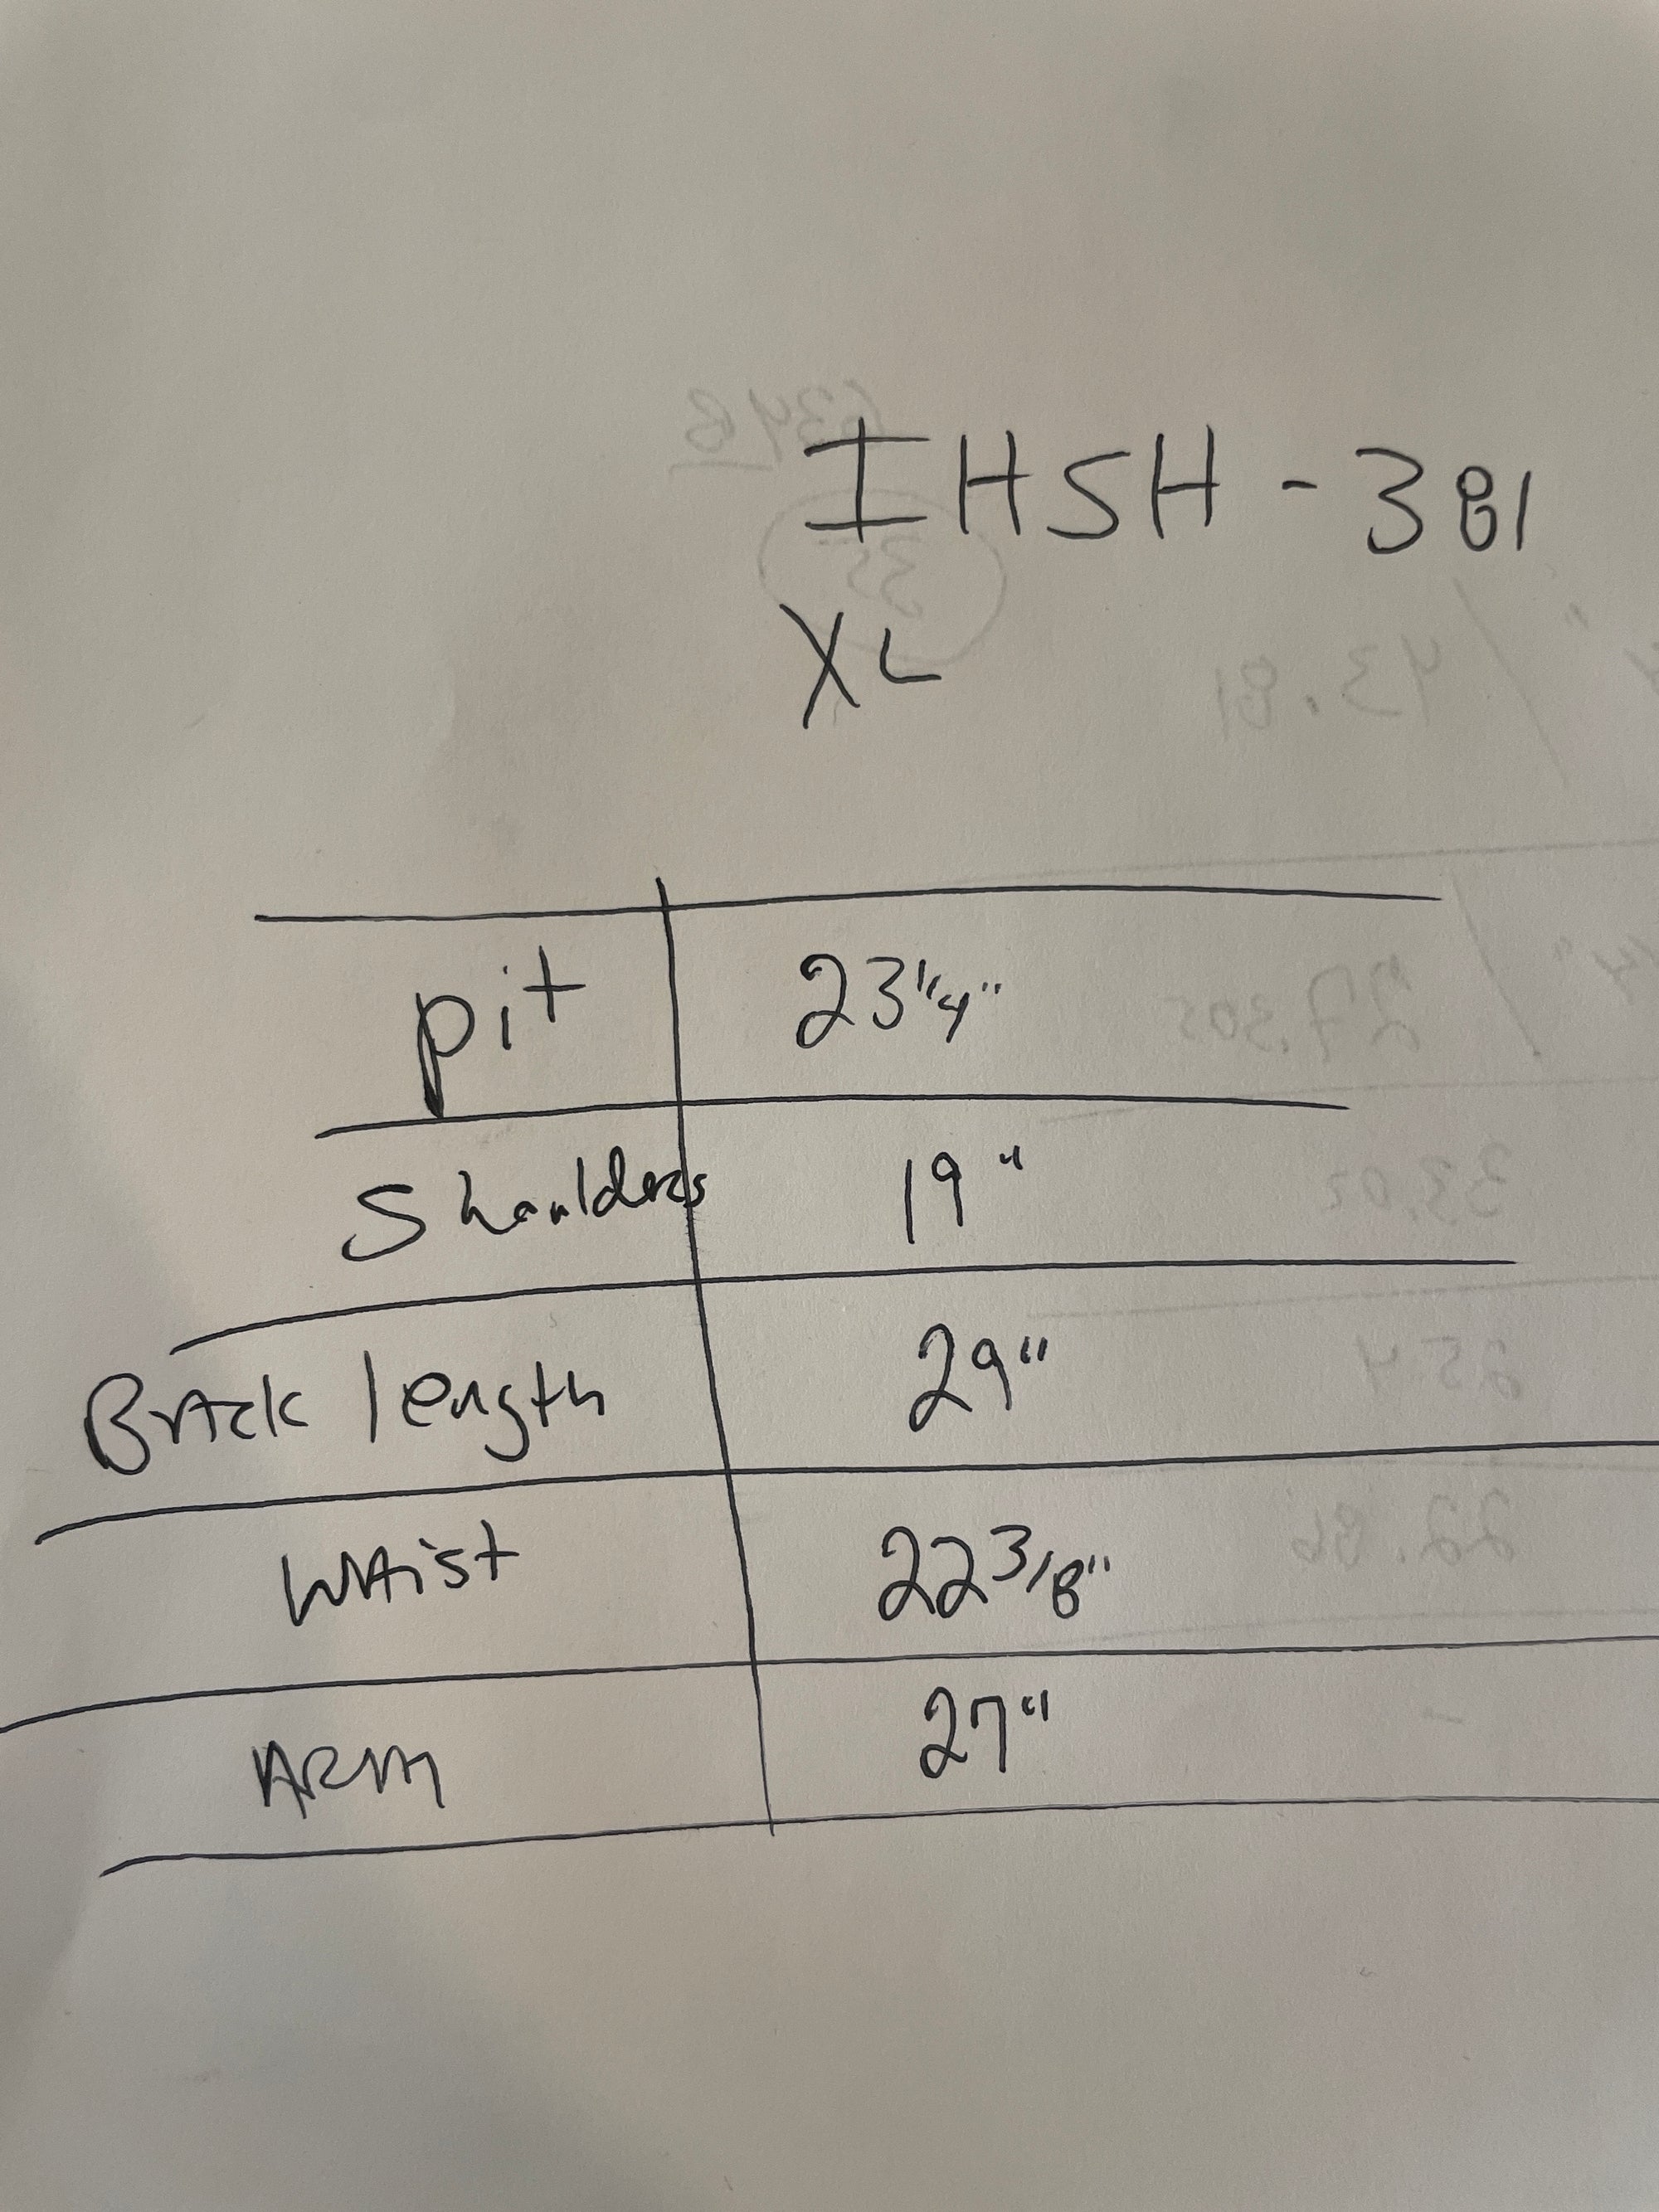 IHSH-381
XL
pit 23 1/4"
Shoulders 19"
Back length 29"
Waist 22 3/8"
ARM 27"